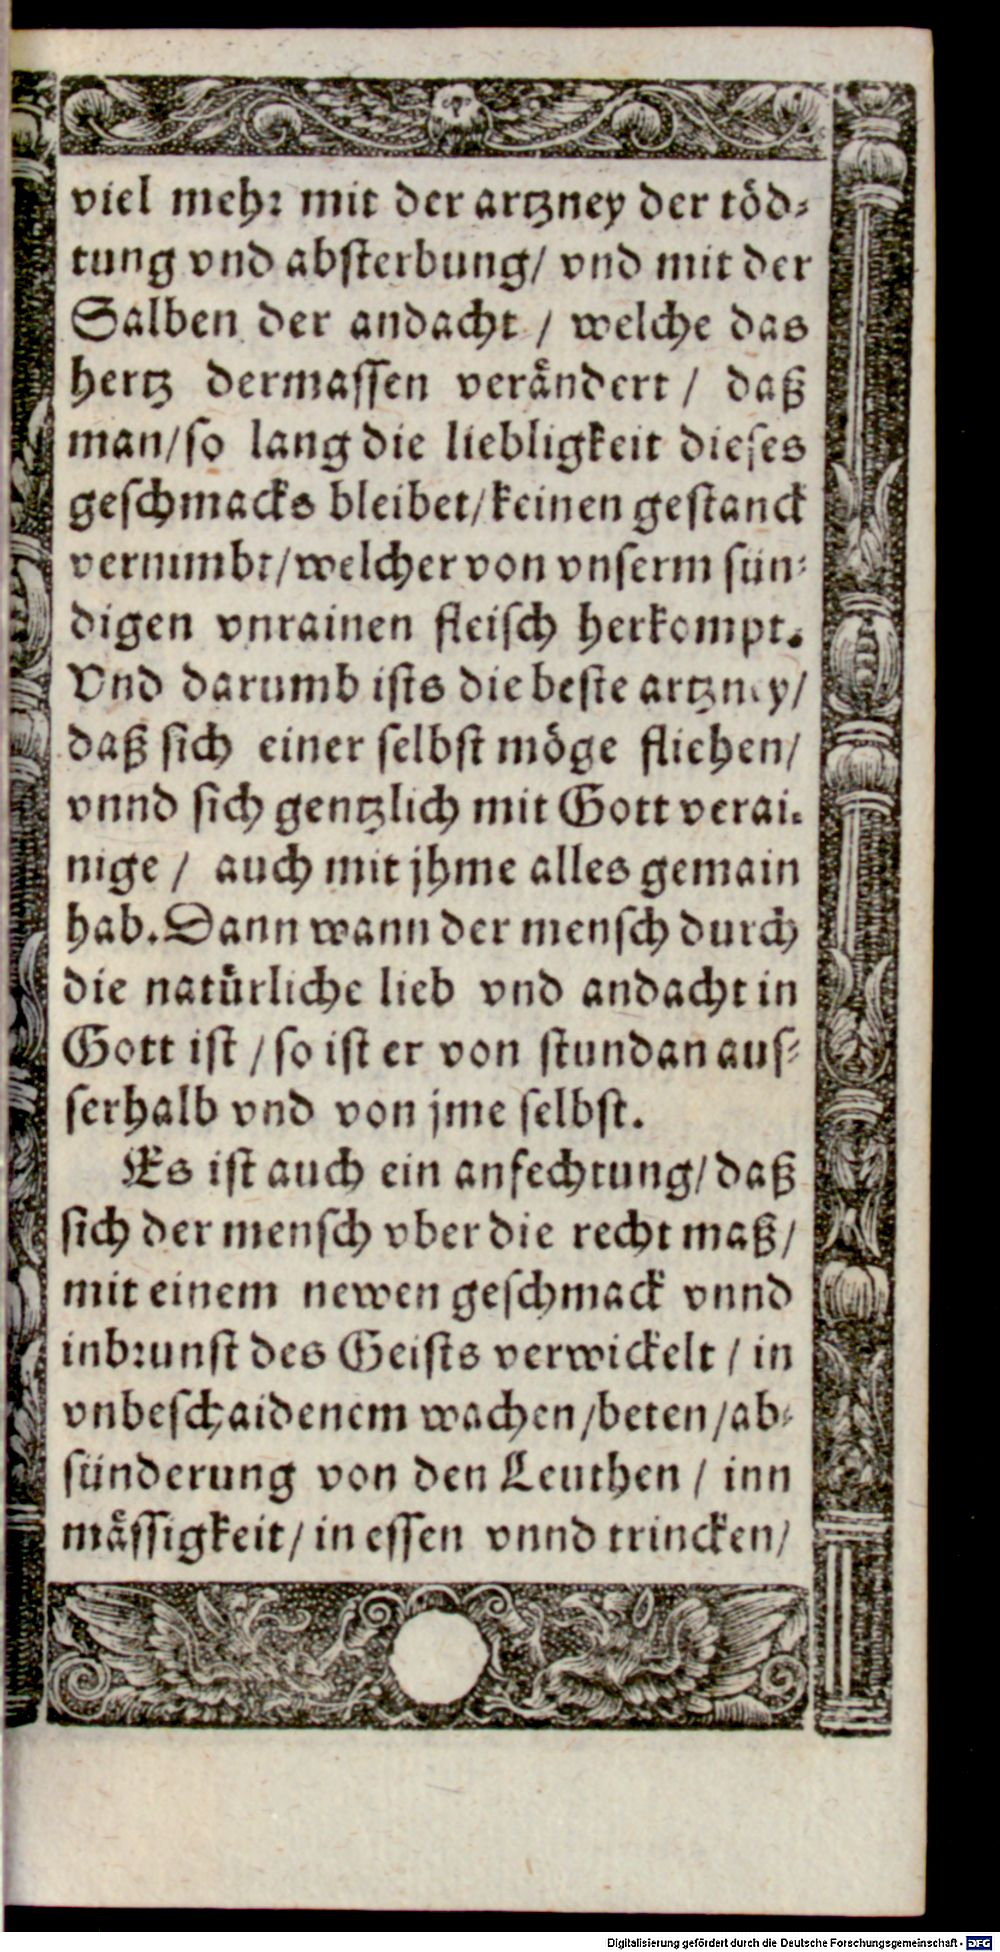 viel mehr mit der artzney der töd-
tung vnd absterbung/ vnd mit der
Salben der andacht / welche das
hertz dermassen verändert / daß
man/so lang die liebligkeit dieses
geschmacks bleibet/keinen gestanck
vernimbt/welcher von vnserm sün-
digen vnrainen fleisch herkompt.
Vnd darumb ists die beste artzney/
daß sich einer selbst möge fliehen/
vnnd sich gentzlich mit Gott verai-
nige / auch mit jhme alles gemain
hab. Dann wann der mensch durch
die natürliche lieb vnd andacht in
Gott ist / so ist er von stundan aus-
serhalb vnd von jme selbst.
Es ist auch ein anfechtung/ daß
sich der mensch vber die recht maß/
mit einem newen geschmack vnnd
inbrunst des Geists verwickelt / in
vnbeschaidenem wachen/beten/ab-
sünderung von den Leuthen / inn
mässigkeit/ in essen vnnd trincken/
Digitalisierung gefördert durch die Deutsche Forschungsgemeinschaft - DFG